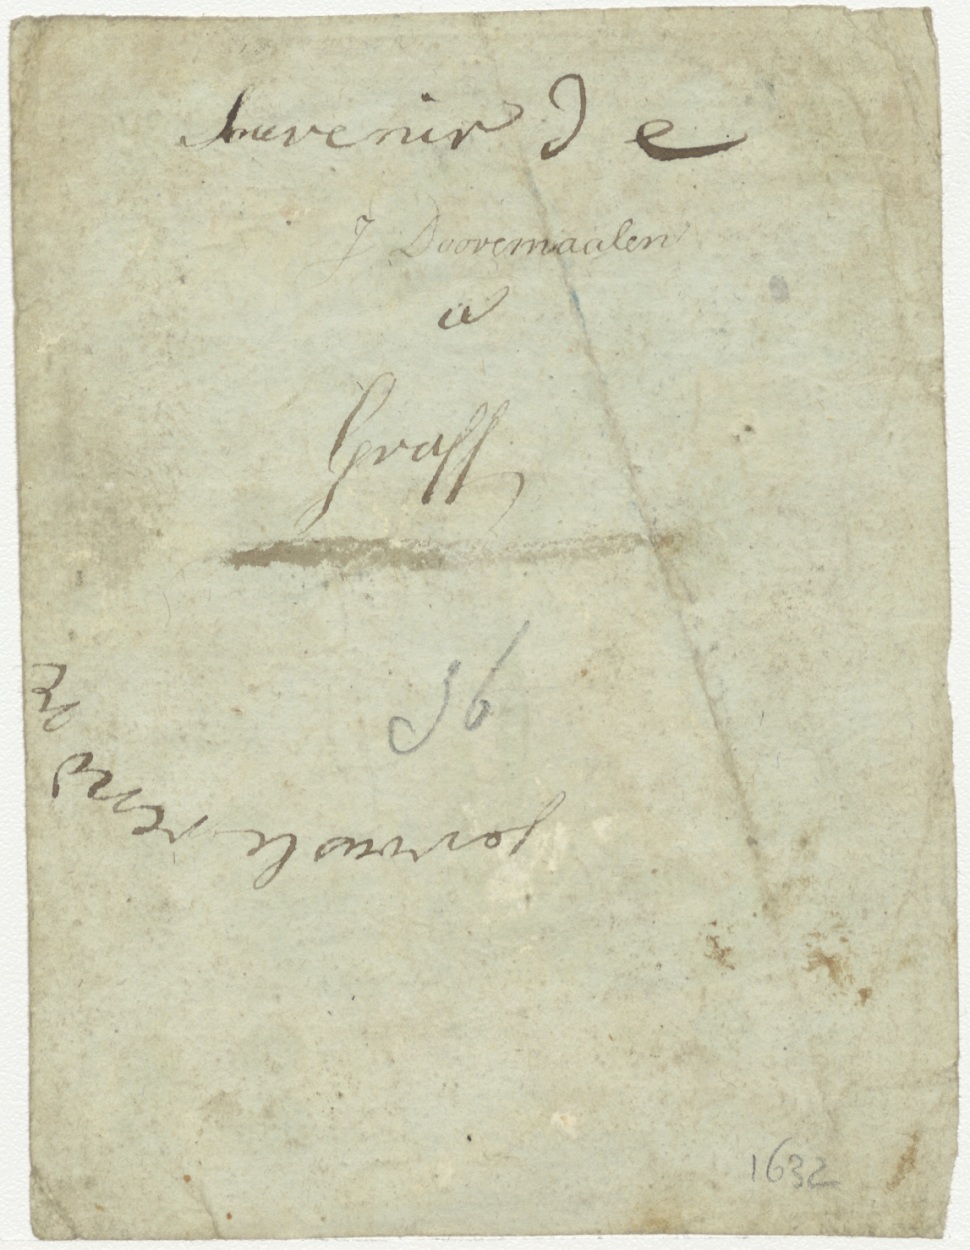 Souvenir de
J Doovemaalen
a
Graff
36
1632